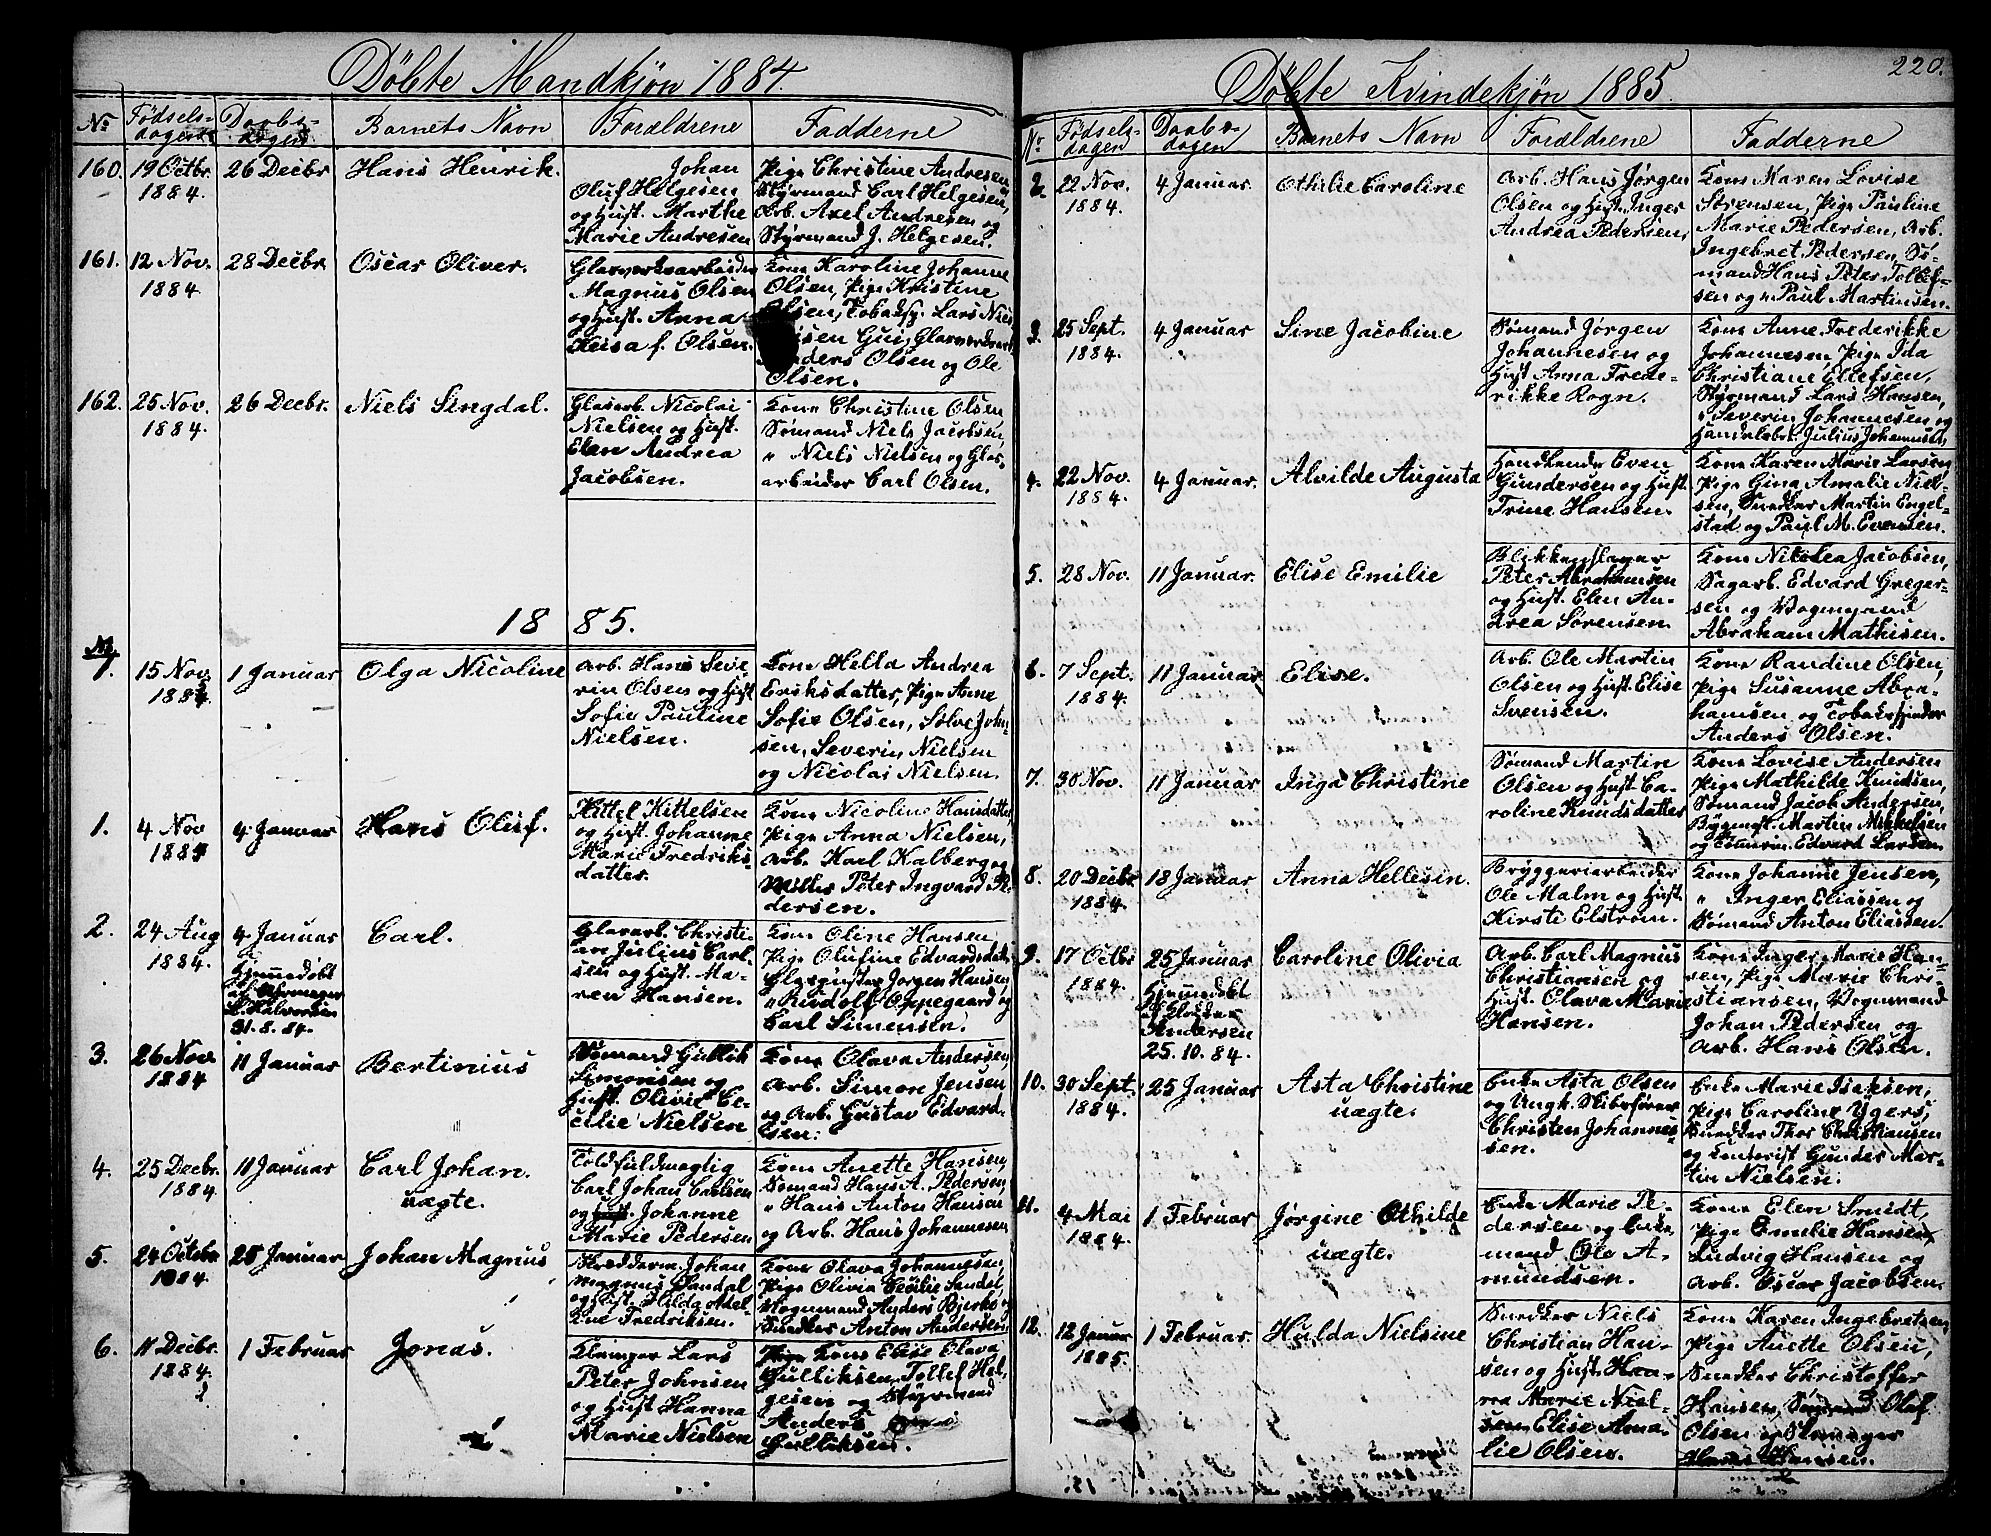 Døbte Mandkjøn 1884.
No Fødsels-dagen Daabs-dagen Barnets Navn Forældrene Fadderne
160. 19 Octbr. 1884. 26 Decbr Hans Henrik.
Johan
Oluf Helgesen
og Hust. Marthe
Marie Andresen
Pige Christine Andresen,
Styrmand Carl Helgesen,
Arb. Axel Andresen og
Styrmand J. Helgesen.
161. 12 Nov. 1884. 28 Decbr Oscar Oliver.
Glasverksarbeider
Magnus Olsen
og Hust. Anna
Luisa f. Olsen.
Kone Karoline Johanne
Olsen, Pige Kristine
Olsen, Lars
Olsen og Ole
Olsen.
162. 25 Nov. 1884. 26 Decbr. Niels Singdal.
Glasarb. Nicolai
Nielsen og Hust.
Elen Andrea
Jacobsen.
Kone Christine Olsen
Sømand Niels Jacobsen,
" Niels Nielsen og Glas-
arbeider Carl Olsen.
1885.
No
1. 15 Nov. 1884 1 Januar Olga Nicoline
Arb. Hans Seve-
rin Olsen og Hust
Sofie Pauline
Nielsen.
Kone Hella Andrea
Eriksdatter, Pige Anne
Sofie Olsen, Sølve John-
sen, Severin Nielsen
og Nicolai Nielsen.
1. 4 Nov 1884 4 Januar Hans Oluf.
Kittel Kittelsen
og Hust. Johanne
Marie Fredriks-
datter.
Kone Nicoline Hansdatter,
Pige Anna Nielsen,
Arb. Karl Kalberg og
Peter Ingvard Pe-
dersen.
2. 24 Aug 1884. 4 Januar
Hjemmedøbt
af
Halvorsen
31.8.84.
Carl.
Glasarb. Christi-
an Julius Carl-
sen og Hust. Ma-
ren Hansen.
Kone Oline Hansen
Pige Olufine Edvardsdat.
Glaspuster Jørgen Hansen
" Rudolf Oppegaard og
Carl Simensen.
3. 26 Nov. 1884 11 Januar Bertinius
Sømand Gullik
Simonsen og
Hust. Olivie Ce-
cilie Nielsen
Kone Olava Andersen,
Arb. Simon Jensen
og Arb. Gustav Edvard-
sen.
4. 25 Decbr. 1884. 11 Januar Carl Johan.
uægte.
Toldfuldmægtig
Carl Johan Carlsen
og Johanne
Marie Pedersen
Kone Anette Hansen,
Sømand Hans A. Pedersen,
" Hans Anton Hansen
og Arb. Hans Johannesen
5. 24 Octobr 1884. 25 Januar Johan Magnus
Skrædderm. Johan
Magnus Sandal
og Hust. Hilda Adel-
ine Fredriksen.
Kone Olava Johannesen,
Pige Olivia Cecilie Sandal,
Vognmand Anders Bjerke og
Snedker Anton Andersen
6. 11 Decbr. 1884. 1 Februar Jonas.
Lars
Peter Johnsen
og Hust Hanna
Marie Nielsen
Kone Elise Olava
Gulliksen, Tollef Hel-
gesen og Styrmand
Anders
Gulliksen.
Døbte Kvindekjøn 1885.
220.
No Fødsels-dagen Daabs-dagen Barnets Navn Forældrene Fadderne
2. 22 Nov. 1884. 4 Januar. Othilie Caroline
Arb. Hans Jørgen
Olsen og Hust. Inger
Andrea Pedersen,
Kone Maren Lovise
Sørensen, Pige Pauline
Marie Pedersen, Arb.
Ingebret Pedersen, Sø-
mand Hans Peter Tollef-
sen og " Paul Martinsen.
3. 25 Sept. 1884. 4 Januar Sine Jacobine
Sømand Jørgen
Johannesen og
Hust Anna Frede-
rikke Rogn.
Kone Anne Frederikke
Johannesen Pige Ida
Christiane Ellefsen,
Styrmand Lars Hansen,
" Severin Johannesen og
Handelsbet. Julius Johannesen,
4. 22 Nov. 1884. 4 Januar. Alvilde Augusta
Even
Gundersen og Hust.
Trine Hansen.
Kone Karen Marie Larsen
Pige Gina Amalie Niel-
sen, Snedker Martin Engel-
stad og Paul M. Evensen.
5. 28 Nov. 11 Januar. Elise Emilie
Blikkenslager
Peter Abrahamsen
og Hust. Elen An-
drea Sørensen.
Kone Nikolea Jacobsen,
Sagarb. Edvard Greger-
sen og Vognmand
Abraham Mathisen.
6. 7 Sept. 1884. 11 Januar Elise.
Arb. Ole Martin
Olsen og Hust. Elise
Svensen.
Kone Randine Olsen,
Pige Susanne Abra-
hamsen og Tobaksspinder
Anders Olsen.
7. 30 Nov. 11 Januar Inga Christine
Sømand Martin
Olsen og Hust. Ca-
roline Knudsdatter
Kone Lovise Andersen
Pige Mathilde Knudsen,
Sømand Jacob Andersen,
Martin Mikkelsen
og Tømrm. Edvard Larsen.
8. 20 Decbr. 1884. 18 Januar Anna Hellesen.
Bryggeriarbeider
Ole Malm og Hust.
Kirsti Elstrøm.
Kone Johanne Jensen,
" Inger Eliassen og
Sømand Anton Eliassen.
9. 17 Octbr 1884. 25 Januar
Hjemmedøbt
af
Andersen
25.10.84.
Caroline Olivia
Arb. Carl Magnus
Christiansen og
Hust. Olava Marie
Hansen.
Kone Inger Marie Han-
sen, Pige Marie Chri-
stiansen, Vognmand
Johan Pedersen og
Arb. Hans Olsen.
10. 30 Sept. 1884. 25 Januar Asta Christine
uægte.
Enke Asta Olsen
og Ungk. Skibsfører
Christen Johannes-
sen.
Enke Marie Isaksen,
Pige Caroline Ygers,
Snedker Thor Christiansen
og Gunder Mar-
tin Nielsen.
11. 4 Mai 1884. 1 Februar Jørgine Othilde
uægte.
Enke Marie Pe-
dersen og Enke-
mand Ole A-
mundsen.
Kone Elen Smidt,
Pige Emelie Hansen
Ludvig Hansen og
Arb. Oscar Jacobsen.
12. 12 Januar 1885. 1 Februar. Hulda Nielsine
Snedker Niels
Christian Han-
sen og Hust. Han-
na Marie Niel-
sen Elise Ama-
lie Olsen.
Kone Karen Ingebretsen,
Pige Anette Olsen,
Snedker Christoffer
Hansen, Sømand Olaf
Olsen og
Hans Hansen.